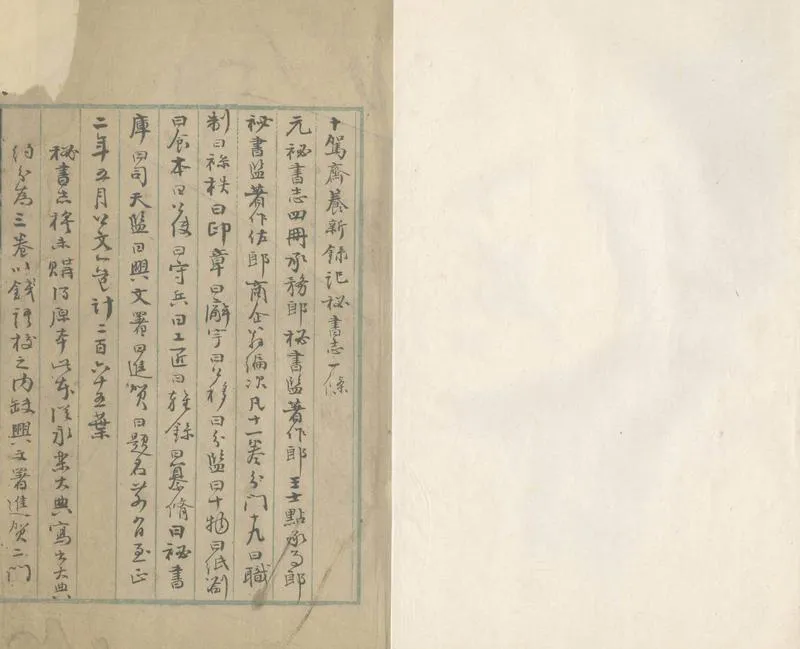 十駕齋養新錄記秘書志一條
元祕書志四冊承務郎祕書監著作郎王士點承事郎
祕書監著作佐郎商企翁編次凡十一卷分門十九曰職
制曰祿秩曰印章曰廨宇曰公移曰分監曰什物曰紙劄
曰食本曰公使曰守兵曰工匠曰雜錄曰纂脩曰祕書
庫曰司天監曰興文署曰進賀曰題名前有至正
二年五月公文一道計二百六十五葉
祕書志 未購得原本此本從永樂大典寫出大典
約分為三卷以錢語校之內缺興文署進賀二門